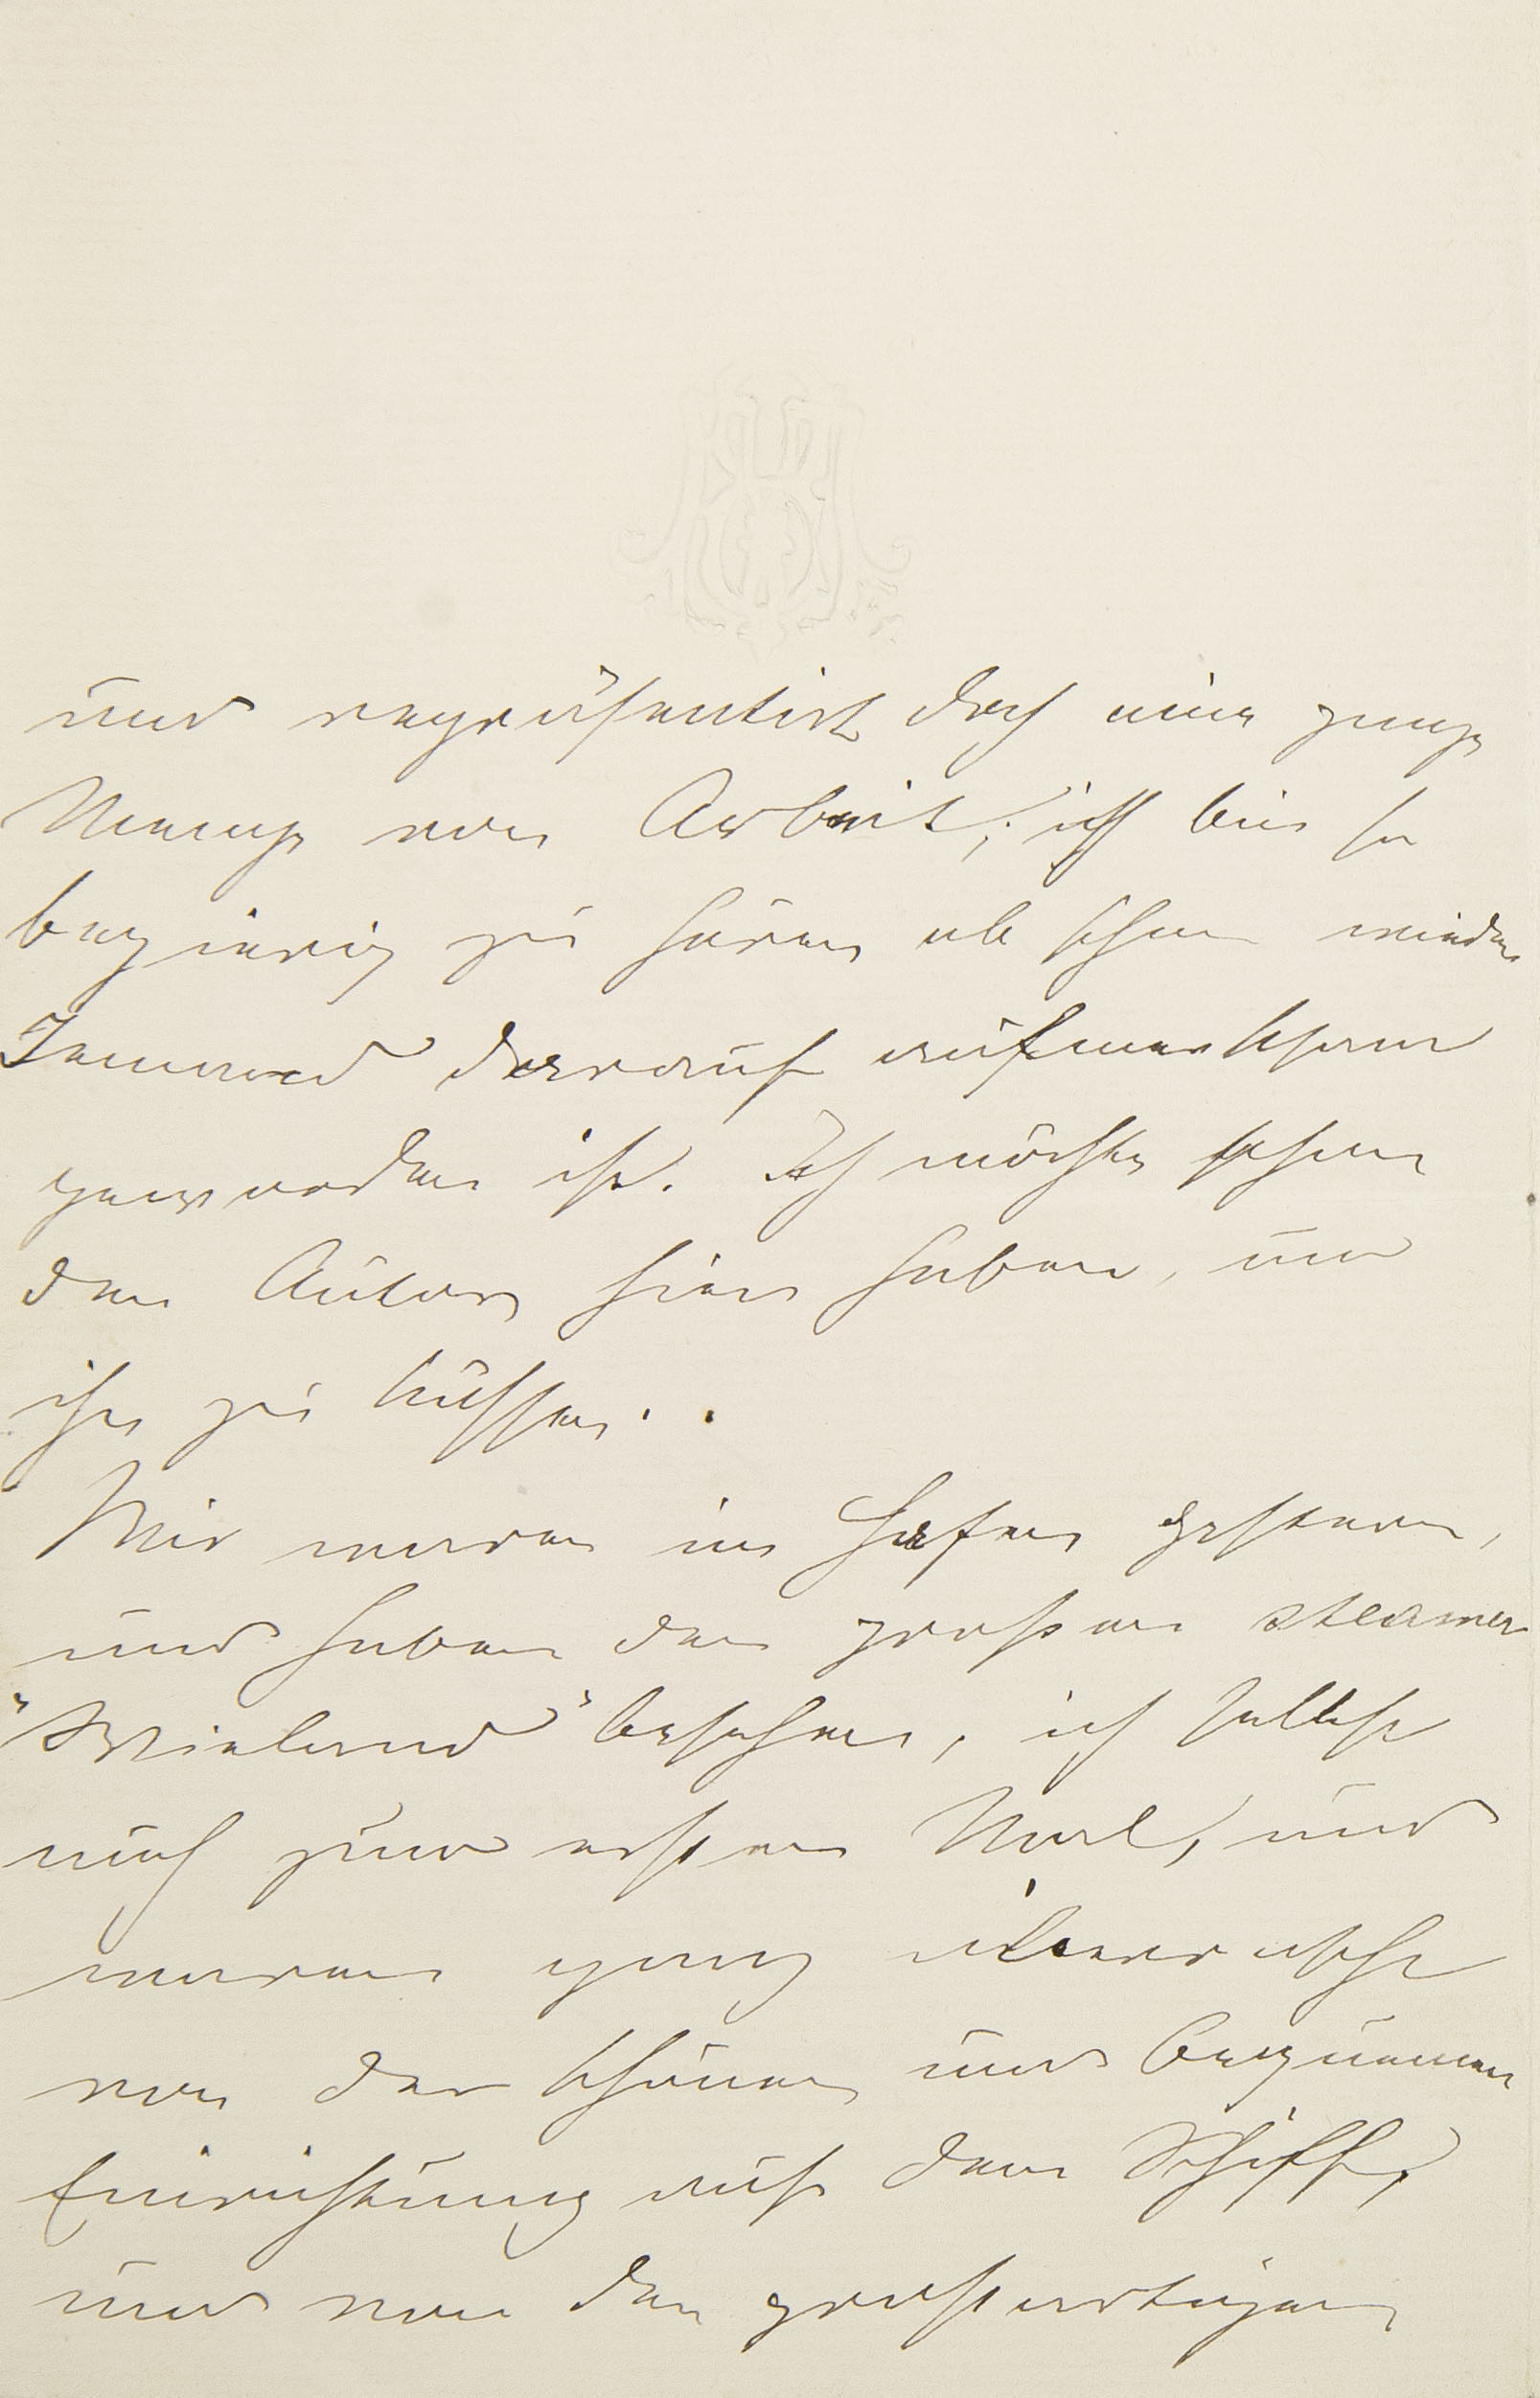 und repräsentirt doch eine ganze
Menge von Arbeit; ich bin so
begierig zu hören ob schon wieder
Jemand darauf aufmerksam
geworden ist. Ich möchte schon
den Autor hier haben, um
ihn zu küssen..
Wir waren im Hafen gestern,
und haben den großen steamer
"Wieland" besehen, ich selbst
auch zum ersten Mal, und
waren ganz überrascht
von der schönen und bequemen
Einrichtung auf dem Schiff,
und von den großartigen